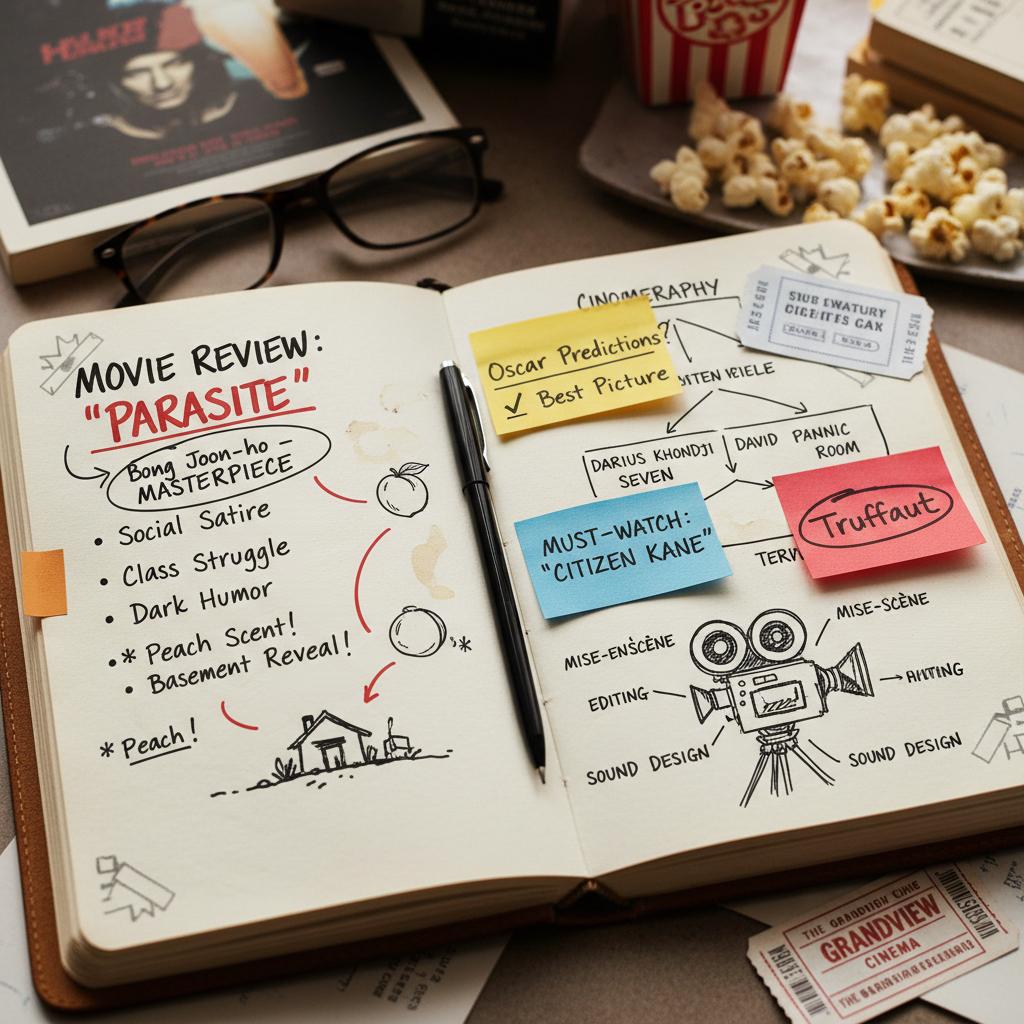 MOVIE REVIEW:
"PARASITE"
Bong Joon-ho –
MASTERPIECE
• Social Satire
• Class Struggle
• Dark Humor
•* Peach Scent!
• Basement Reveal!
*
* Peach!
CINOMERAPHY
Oscar Predictions?
✓ Best Picture
DARIUS KHONDJI
SEVEN
DAVID PANNIC
ROOM
MUST-WATCH:
"CITIZEN KANE"
Truffaut
MISE-ENSCÈNE
MISE-SCÈNE
EDITING
SOUND DESIGN
SOUND DESIGN
GRANDVIEW
CINEMA